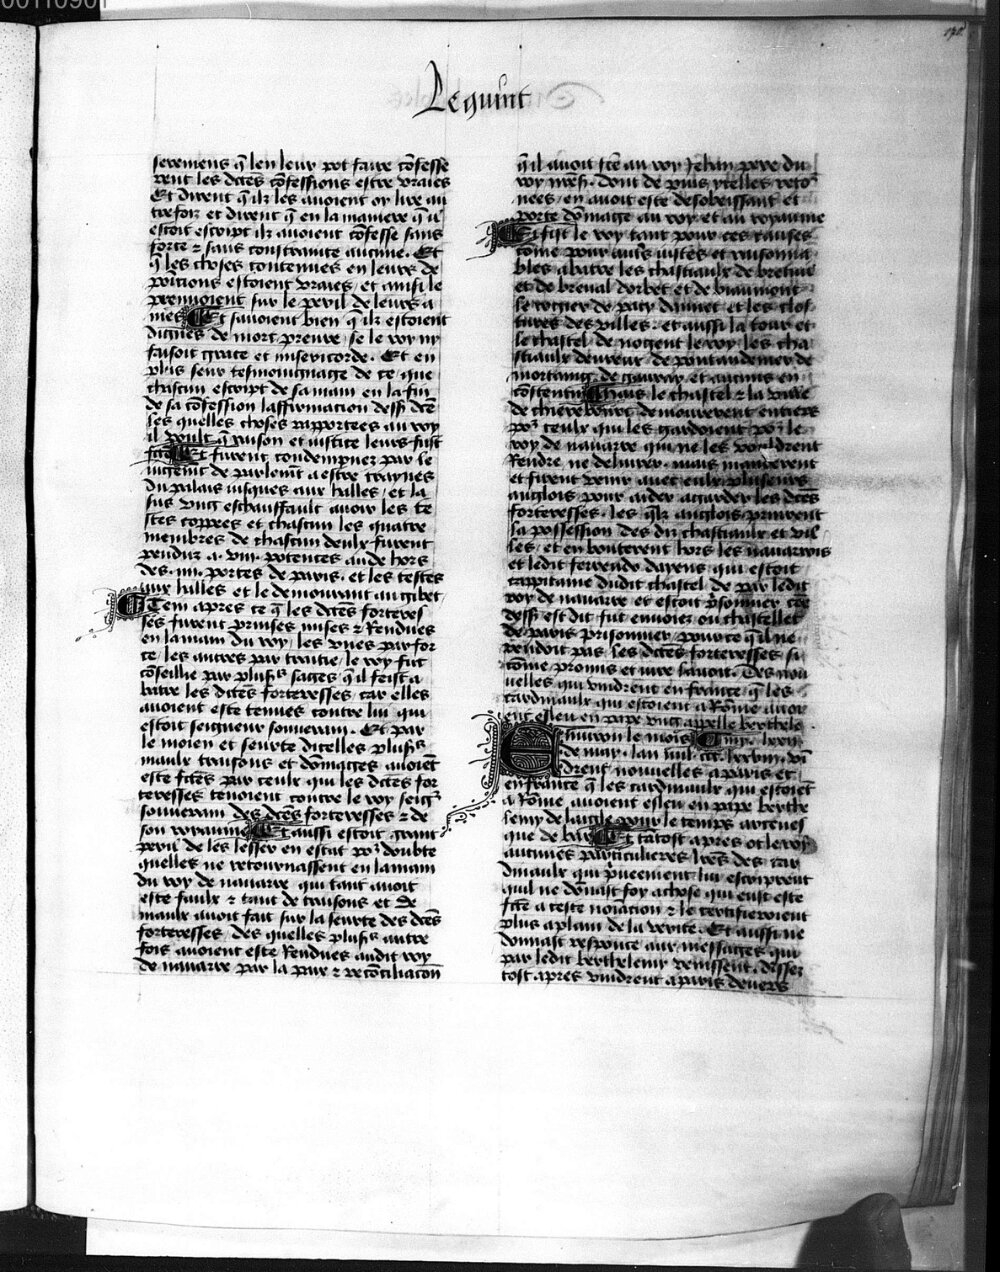 00110901
Le quint
seremens q̄ len leur pot faire cōfesse
rent les dc̄es cōfessions estre vraies
Et dirent q̄ ilz les auoient oy lire au
trefoiz et dirent q̄ en la maniere q̄ il
estoit escript ilz auoient cōfesse sans
force ⁊ sans contrainte aucune. Et
q̄ les choses contenues en leurs de
posicions estoient vraies et ainsi le
prennoient sur le peril de leurs a
mes Et sauoient bien q̄ ilz estoient
dignes de mort preure se le roy ny
faisoit grace et misericorde. Et en
plus seur tesmoingnage de ce que
chascun escript de sa main en la fin
de sa cōfession laffirmacion dess᷑ dc̄e
les quelles choses rapportees au roy
il voult q̄ raison et iustice leur fust
fc̄e Et furent condempnez par le
iugemt̄ de parlemt̄ a estre traynes
du palais iusques aux halles et la
sus vng eschauffault auoir les te
stes coppees et chascun les quatre
membres de chascun deulx furent
penduz a .viii. potences au de hors
des .iiii. portes de paris. et les testes
aux halles et le demourant au gibet
Item apres ce q̄ les dc̄es forteres
ses furent prinses mises ⁊ Rendues
en la main du roy / les vnes par for
ce / les autres par traitie / le roy fut
cōseillie par plus᷑s sages q̄ il feist a
batre les dc̄es forteresses / car elles
auoient este tenues contre lui qui
estoit seigneur souuerain. Et par
le moien et seurte dicelles plus᷑s
maulx traisons et dōmages auoiēt
este fc̄es par ceulx qui les dc̄es for
teresses tenoient contre le roy seigr᷑
souuerain des dc̄es forteresses ⁊ de
son royaume Et aussi estoit grant
peril de les lesser en estat po᷑ doubte
quelles ne retournassent en la main
du roy de nauarre qui tant auoit
este faulx ⁊ tant de traisons et de
maulx auoit fait sur la seurte des dc̄es
forteresses des quelles plus᷑s autre
fois auoient este Rendues audit roy
de nauarre par la paix ⁊ recōciliacōn
q̄ il auoit fc̄e au roy Jehan pere du
roy nr̄e s᷑. Dont de puis ycelles reto᷑
nees / en auoit este desobeissant et
porte dōmage au roy et au royaume
Si fist le roy tant pour ces causes
cōme pour aut᷑s iustes et raisonna
bles abatre les chastiaulx de breteuil
et de breual dorbet et de biaumont
le rogier de pacy danuet et les clos
tures des villes / et aussi la tour et
le chastel de nogent le roy / les cha
stiaulx deureux de pont audemer de
mortaing de gauray et aucuns en
cōstentin Mais le chastel ⁊ la ville
de chierebourc demourerent entiers
po᷑ ceulx qui les gardoient po᷑ le
roy de nauarre qui ne les vouldrent
Rendre ne deliurer. mais manderent
et firent venir auec eulx plusieurs
anglois pour aider a garder les dc̄es
forteresses. les qlz̄ anglois prinrent
la possession des diz chastiaulx et vil
les / et en bouterent hors les nauarrois
et ledit ferrendo dayens qui estoit
cappitaine dudit chastel de par ledit
roy de nauarre et estoit p̄sonnier cōe
dess᷑ est dit fut enuoiez ou chastellet
de paris prisonnier / pour ce q̄ il ne
rendoit pas les dc̄es forteresses si
cōme promis et iure lauoit. Des nou
uelles qui vindrent en france q̄ les
cardinaulx qui estoient a Rōme auoi
ent esleu en pape vng appelle berthele
Enuiron le mois
de may. lan mil .ccc. lxxviii. vi
drent nouuelles a paris et
en france q̄ les cardinaulx qui estoiēt
a Rōme auoient esleu en pape berthe
lemy de laigle pour le temps arceues
que de bar Et tātost apres ot le roy
aucunes particulieres lr̄es des car
dinaulx qui p̄ueement lui escriprent
quil ne dōnast foy a chose qui eust este
fc̄e a ceste nominacion ⁊ le certifieroient
plus aplain de la verite. Et aussi ne
donnast responce aux messages qui
par ledit berthelemy venissent. Assez
tost apres vindrent a paris deuers